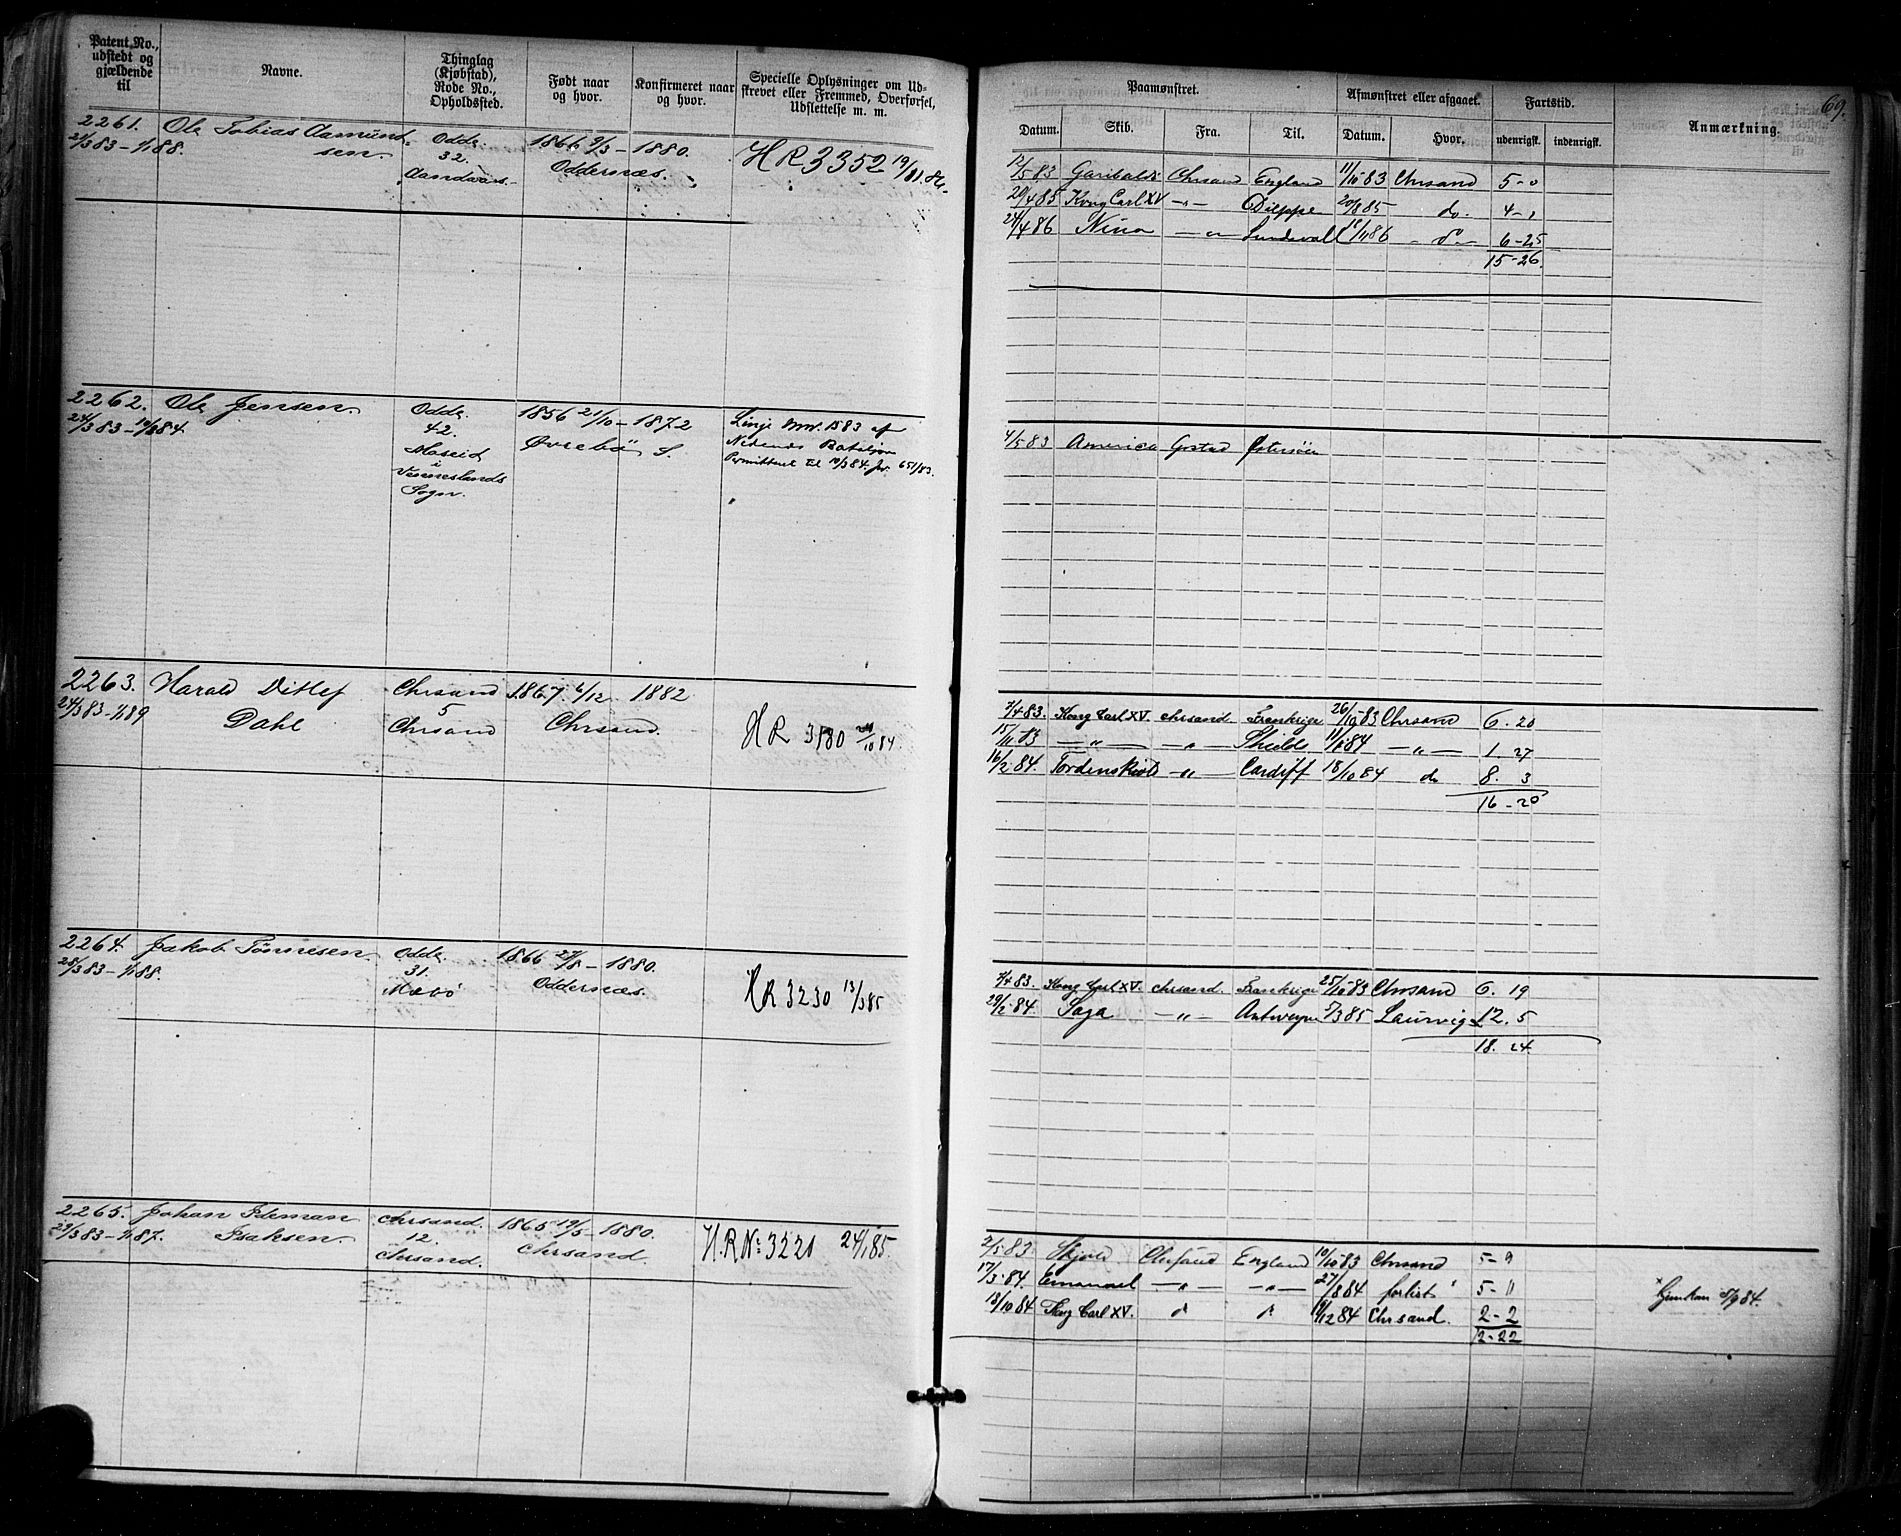 69.
Patent No., udstedt og gjældende til
Navne.
Thinglag (Kjøbstad), Rode No., Opholdssted.
Født naar og hvor.
Konfirmeret naar og hvor.
Specielle Oplysninger om Udskrevet eller Fremmed, Overførsel, Udslettelse m. m.
Paamønstret.
Afmønstret eller afgaaet.
Fartstid.
Anmærkning.
Datum. Skib. Fra. Til. Datum. Hvor. udenrigsk. indenrigsk.
2261. Ole Tobias Aasmund- Odde. 1866 9/3 - 1880. HR 3352 19/11.86.
21/3 83 - 1/1 88. sen. 32. Oddernæs.
12/5 83 Garibaldi Chrsand England 11/10 83 Chrsand 5-0
20/4 85 Kong Carl XV -"- Dieppe 20/8 85 do. 4-1
24/4 86 Nina -"- Sundsvall 18/11 86 - d - 6-25
15-26.
2262. Ole Jensen. Odde. 1856 21/10 - 1872 Linje No. 1583 af
24/3 83 - 10/3 84. 42. Øvrebø S. Nedenæs Bataljon
Moseid Permitteret til 10/3 84. Jr. 651/83.
i
Venneslands
Sogn.
4/5 83 America Østersøen
2263. Harald Ditlef Chrsand 1867 6/12 1882
24/3 83 - 1/1 89 Dahl 5 Chrsand. HR 3180 10 84.
Chrsand
7/4 83. Kong Carl XV. Chrsand. Frankrige 26/10 83 Chrsand 6. 20
15/11 83 -"- -"- Shields 11/1 84 -"- 1. 27
16/2 84. Tordenskiold -"- Cardiff 18/10 84 do 8. 3
16 - 20
2264. Jakob Tønnesen. Odde. 1866 27/8 - 1880. HR 3230 13/3 85
28/3 83 - 1/1 88. 31. Oddernæs.
7/4 83. Kong Carl XV. Chrsand. Frankrige 25/10 83 Chrsand 6. 19
29/2 84. Saga -"- Antwerpen 5/3 85 Laurvig 12. 5
18. 24.
2265. Johan Isaksen. Chrsand. 1865 19/5 - 1880. H.R No. 3221 24/1 85.
29/3 83 - 1/1 87. 12. Chrsand
Chrsand.
2/5 83 Skjold Chrsand England 10/10 83 Chrsand 5-9
17/3 84. Emanuel -"- -"- 27/8 84 forlist 5-11
13/10 84 Kong Carl XV. d d 19/12 84 Chrsand. 2-2
12-22